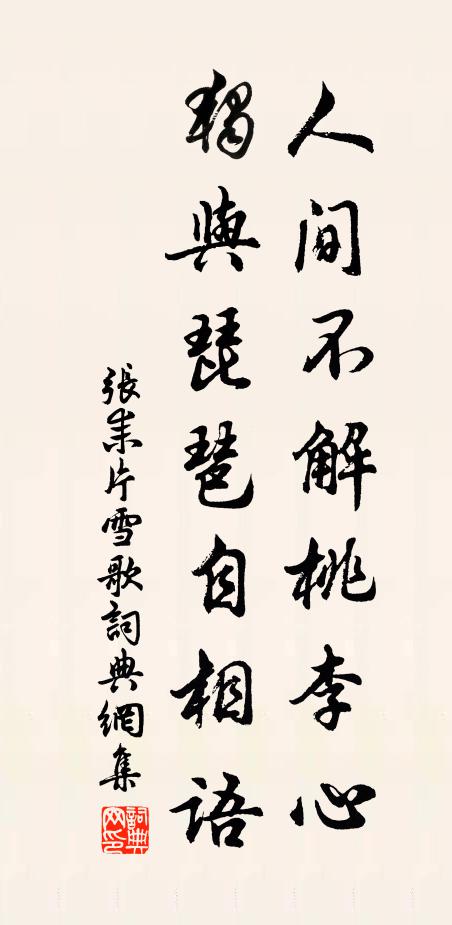 人间不解桃李心
獨與琵琶自相語
張耒片雪歌詞典網集
詞典網印